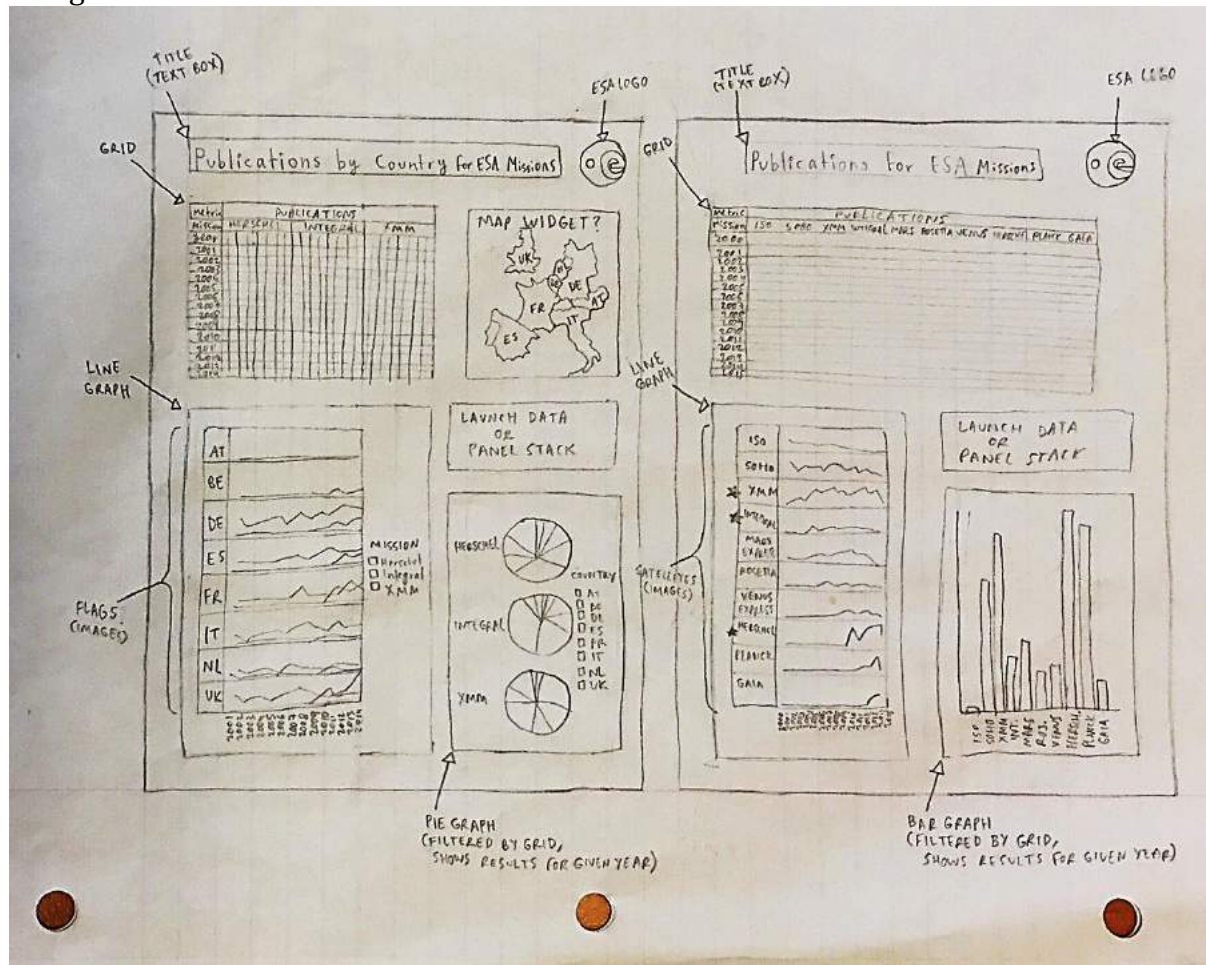 TITLE
(TEXT BOX)
ESA LOGO
GRID
Publications by Country for ESA Missions
Metric
PUBLICATIONS
Mission
HERSCHEL
INTEGRAL
XMM
2001
2002
2003
2009
2010
MAP WIDGET?
UK
DE
FR
AT
IT
ES
LINE
GRAPH
AT
BE
DE
ES
FR
IT
NL
UK
FLAGS
(IMAGES)
MISSION
Herschel
Integral
XMM
LAUNCH DATA
OR
PANEL STACK
HERSCHEL
INTEGRAL
XMM
COUNTRY
AT
BE
DE
ES
FR
IT
NL
UK
PIE GRAPH
(FILTERED BY GRID,
SHOWS RESULTS FOR GIVEN YEAR)
TITLE
(TEXT BOX)
ESA LOGO
GRID
Publications for ESA Missions
Metric
PUBLICATIONS
Mission ISO SOHO XMM INTEGRAL MARS ROSETTA VENUS HERSCHEL PLANCK GAIA
2000
2001
2002
2003
2010
2011
2012
2013
LINE
GRAPH
ISO
SOHO
XMM
INTEGRAL
MARS
EXPRESS
ROSETTA
VENUS
EXPRESS
HERSCHEL
PLANCK
GAIA
SATELLEYES
(IMAGES)
LAUNCH DATA
OR
PANEL STACK
ISO
SOHO
XMM
INT.
MARS
ROS.
VENUS
HERSCH.
PLANCK
GAIA
BAR GRAPH
(FILTERED BY GRID,
SHOWS RESULTS FOR GIVEN YEAR)